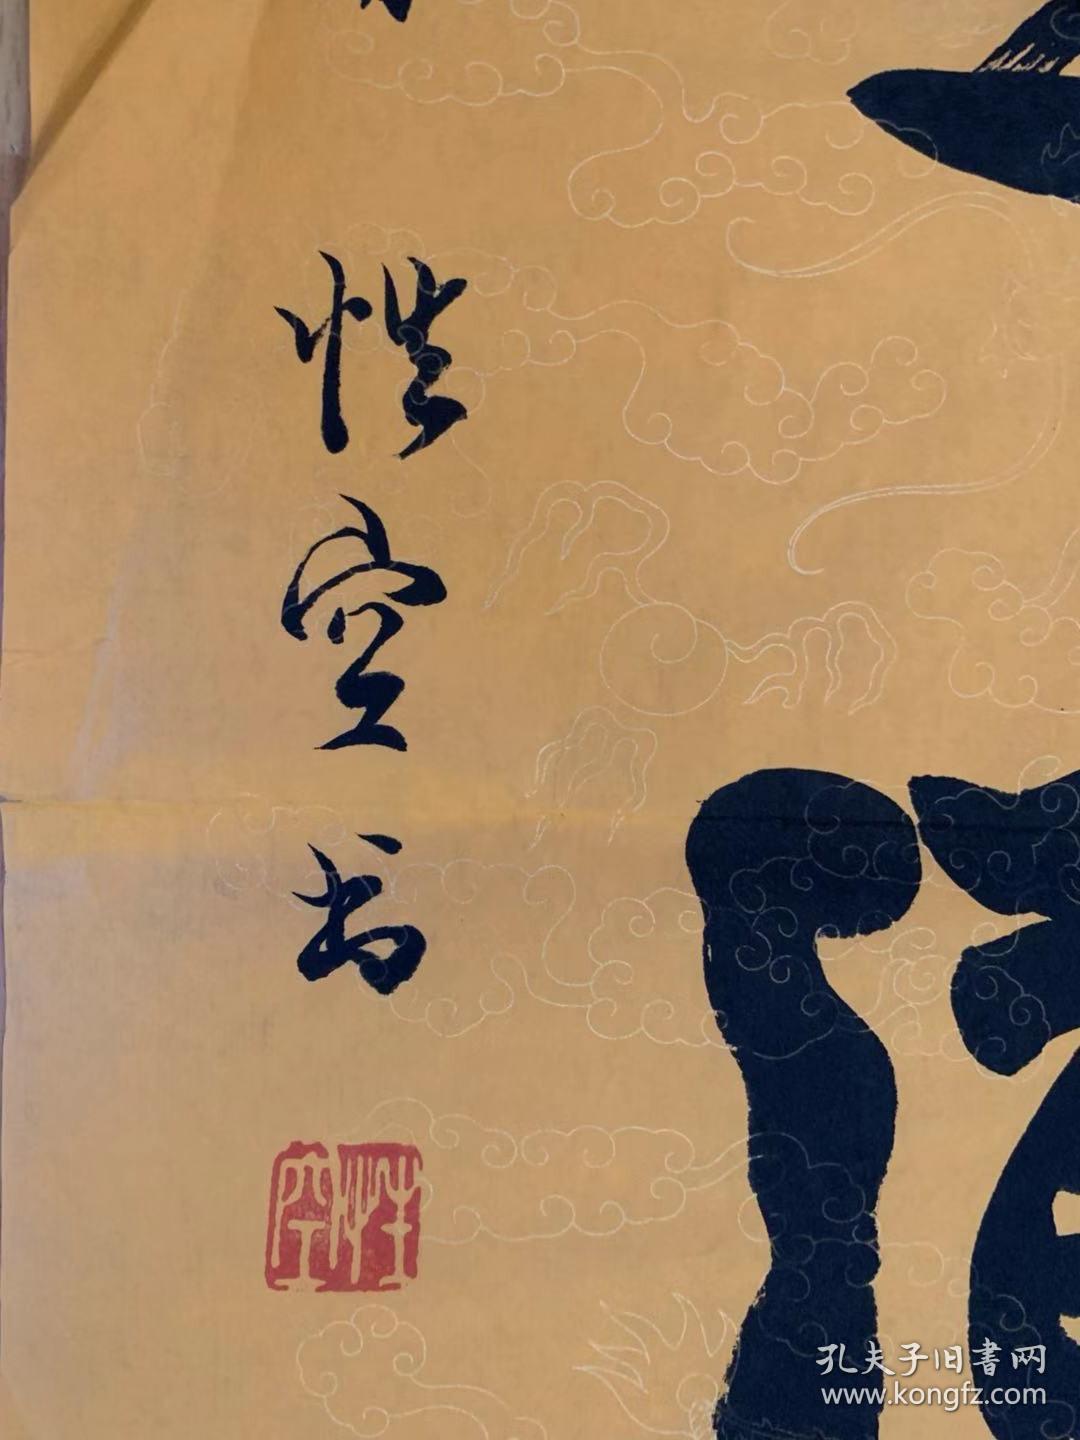 性空书
性空
孔夫子旧書网
www.kongfz.com